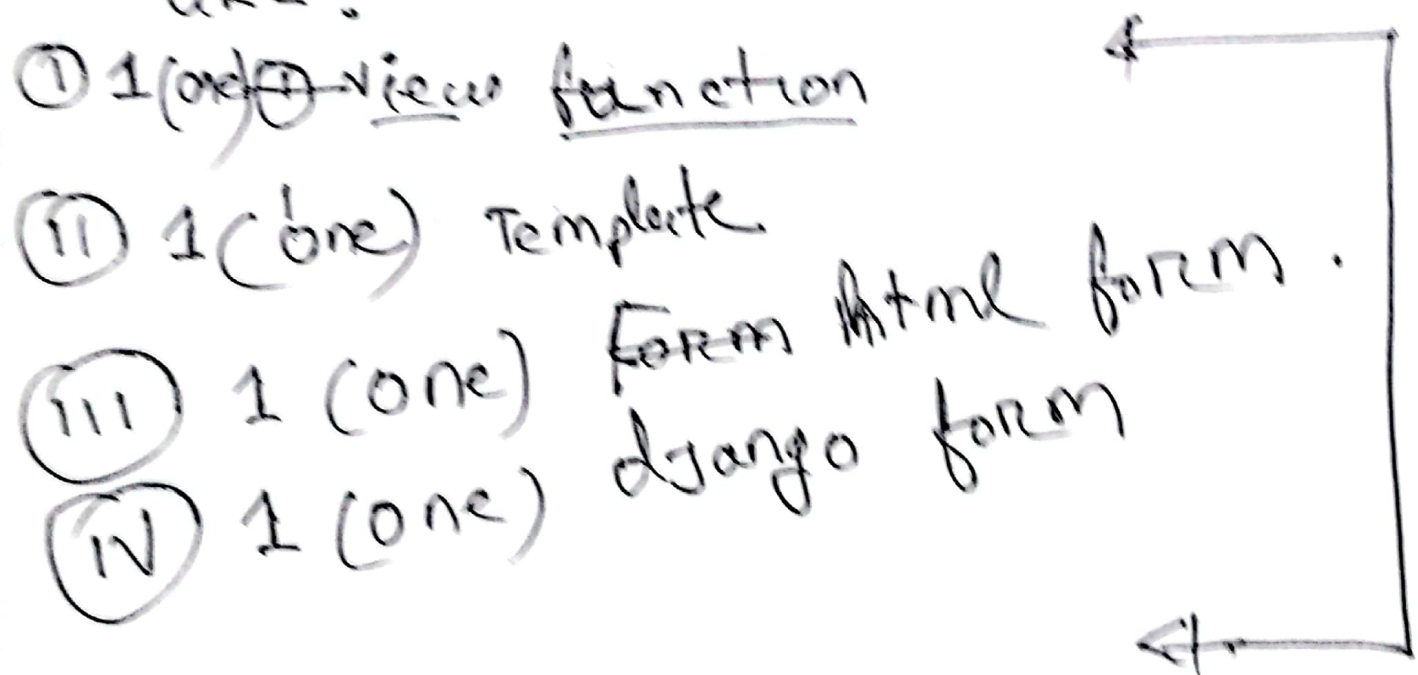 (I) 1 (one) view function
(II) 1 (one) Template
(III) 1 (one) Form html form.
(IV) 1 (one) django form